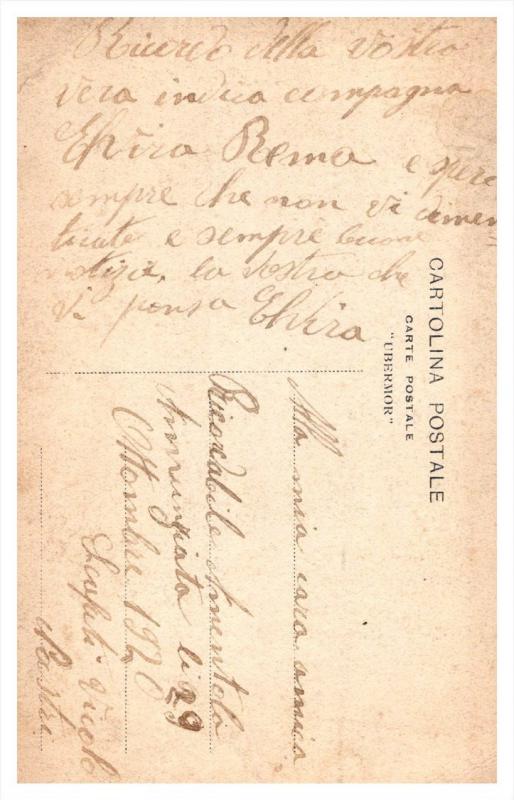 Ricordo della vostra
vera indica compagna
Elvira Roma e spero
sempre che non vi dimen
ticate e sempre buone
notizie, la vostra che
vi pensa Elvira
CARTOLINA POSTALE
CARTE POSTALE
"UBERMOR"
Alla mia cara amica
Ricordabile
Annunziata li 29
Ottombre 192
Scafati Vicolo